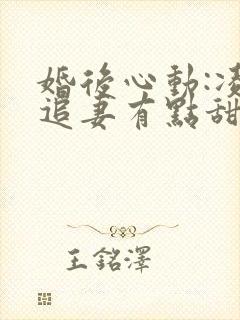 婚後心動:凌
追妻有點甜
王銘澤